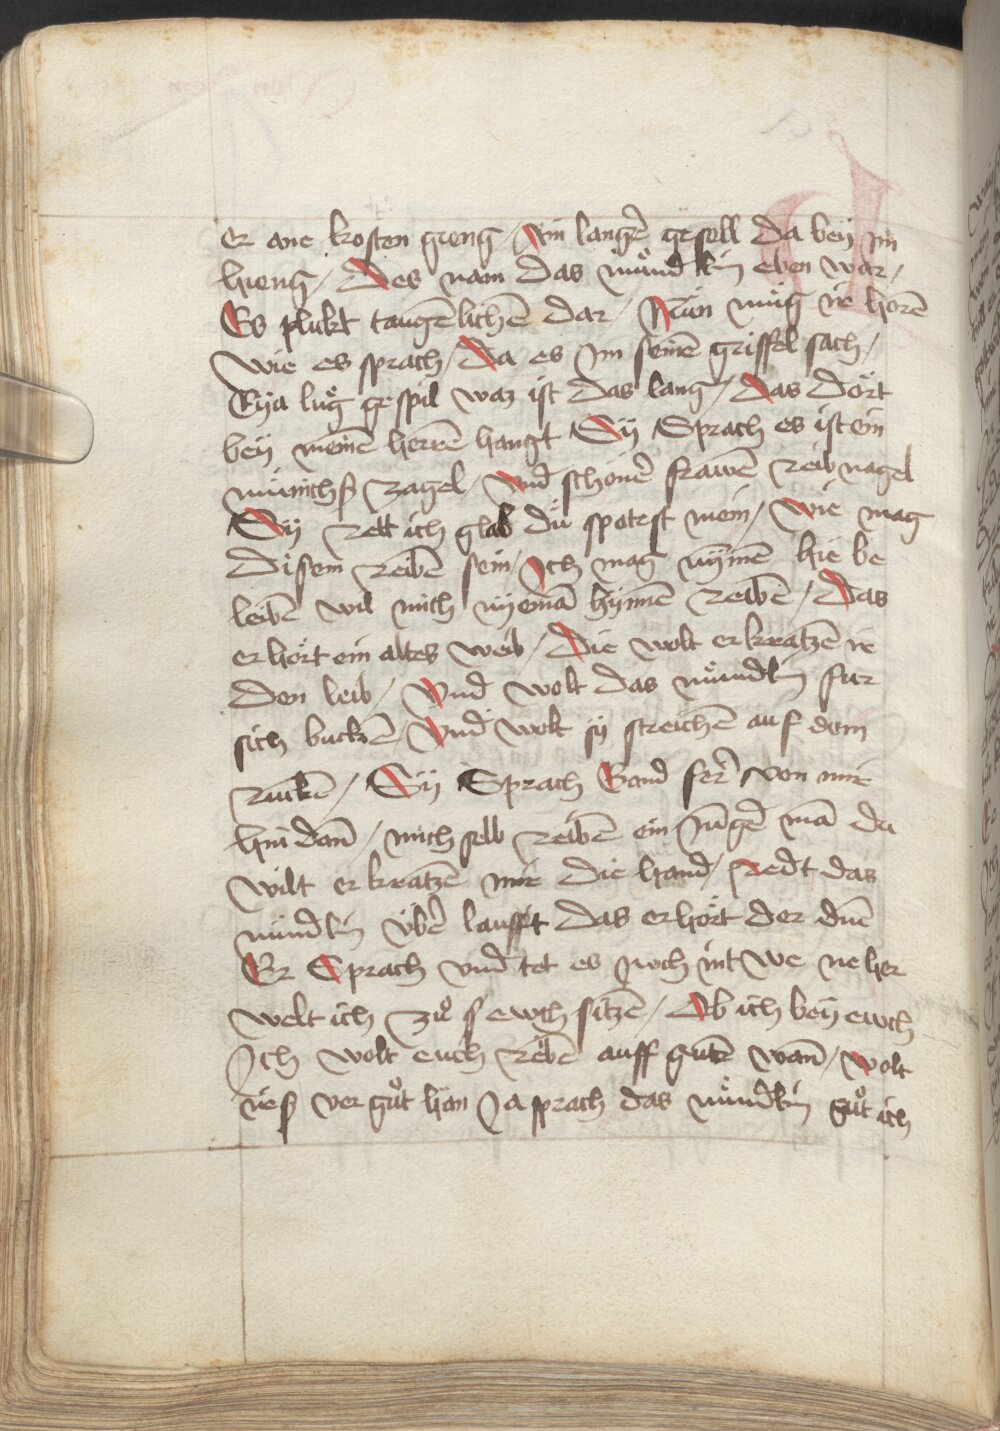 er ane kosten gieng / Ain langer̄ gesell da beÿ im
hieng / Des nam das mu̓nd lin̄ eben war /
Es plickt taugēlichen̄ dar / Nun mu̓g ir̄ horē
wie es sprach / Da es im seinē griffel sach /
Eya lug gespil waz ist das lang / das dort
beÿ meinē herrē hangt Sÿ Sprach es ist ein
mu̓nichß zagel / vnd schoner̄ frawē reibnagel
Sÿ rett ich glab du spotest mein / wie mag
disem reibē sein / Ich mag nÿmē hie be
leibē wil mich nÿemā hÿnnē reibē / Das
erhört ein altes weib / Die wolt erkratzē ir
den leib / vnd wolt das mu̓ndlin̄ fur
sich buckē / vnd wolt sÿ streichē auf dem
ruckē / Sÿ Sprach Gand ferr̄ von mir
hin danā / mich selb reibē ein Junger̄ mā da
wilt erkratzē mir die hand / redt das
mu̓ndlin̄ u̓ber̄ laufft das erhört der ain̄
Er Sprach vnd tet es noch nit we neher
welt ich zuͦ sewch sitzē / Ob ich beÿ ewch
Ich wolt euch rebē auff gutē wan̄ / wolt
irß ver guͦt han Ja sprach das mu̓ndlin̄ guͦt ich